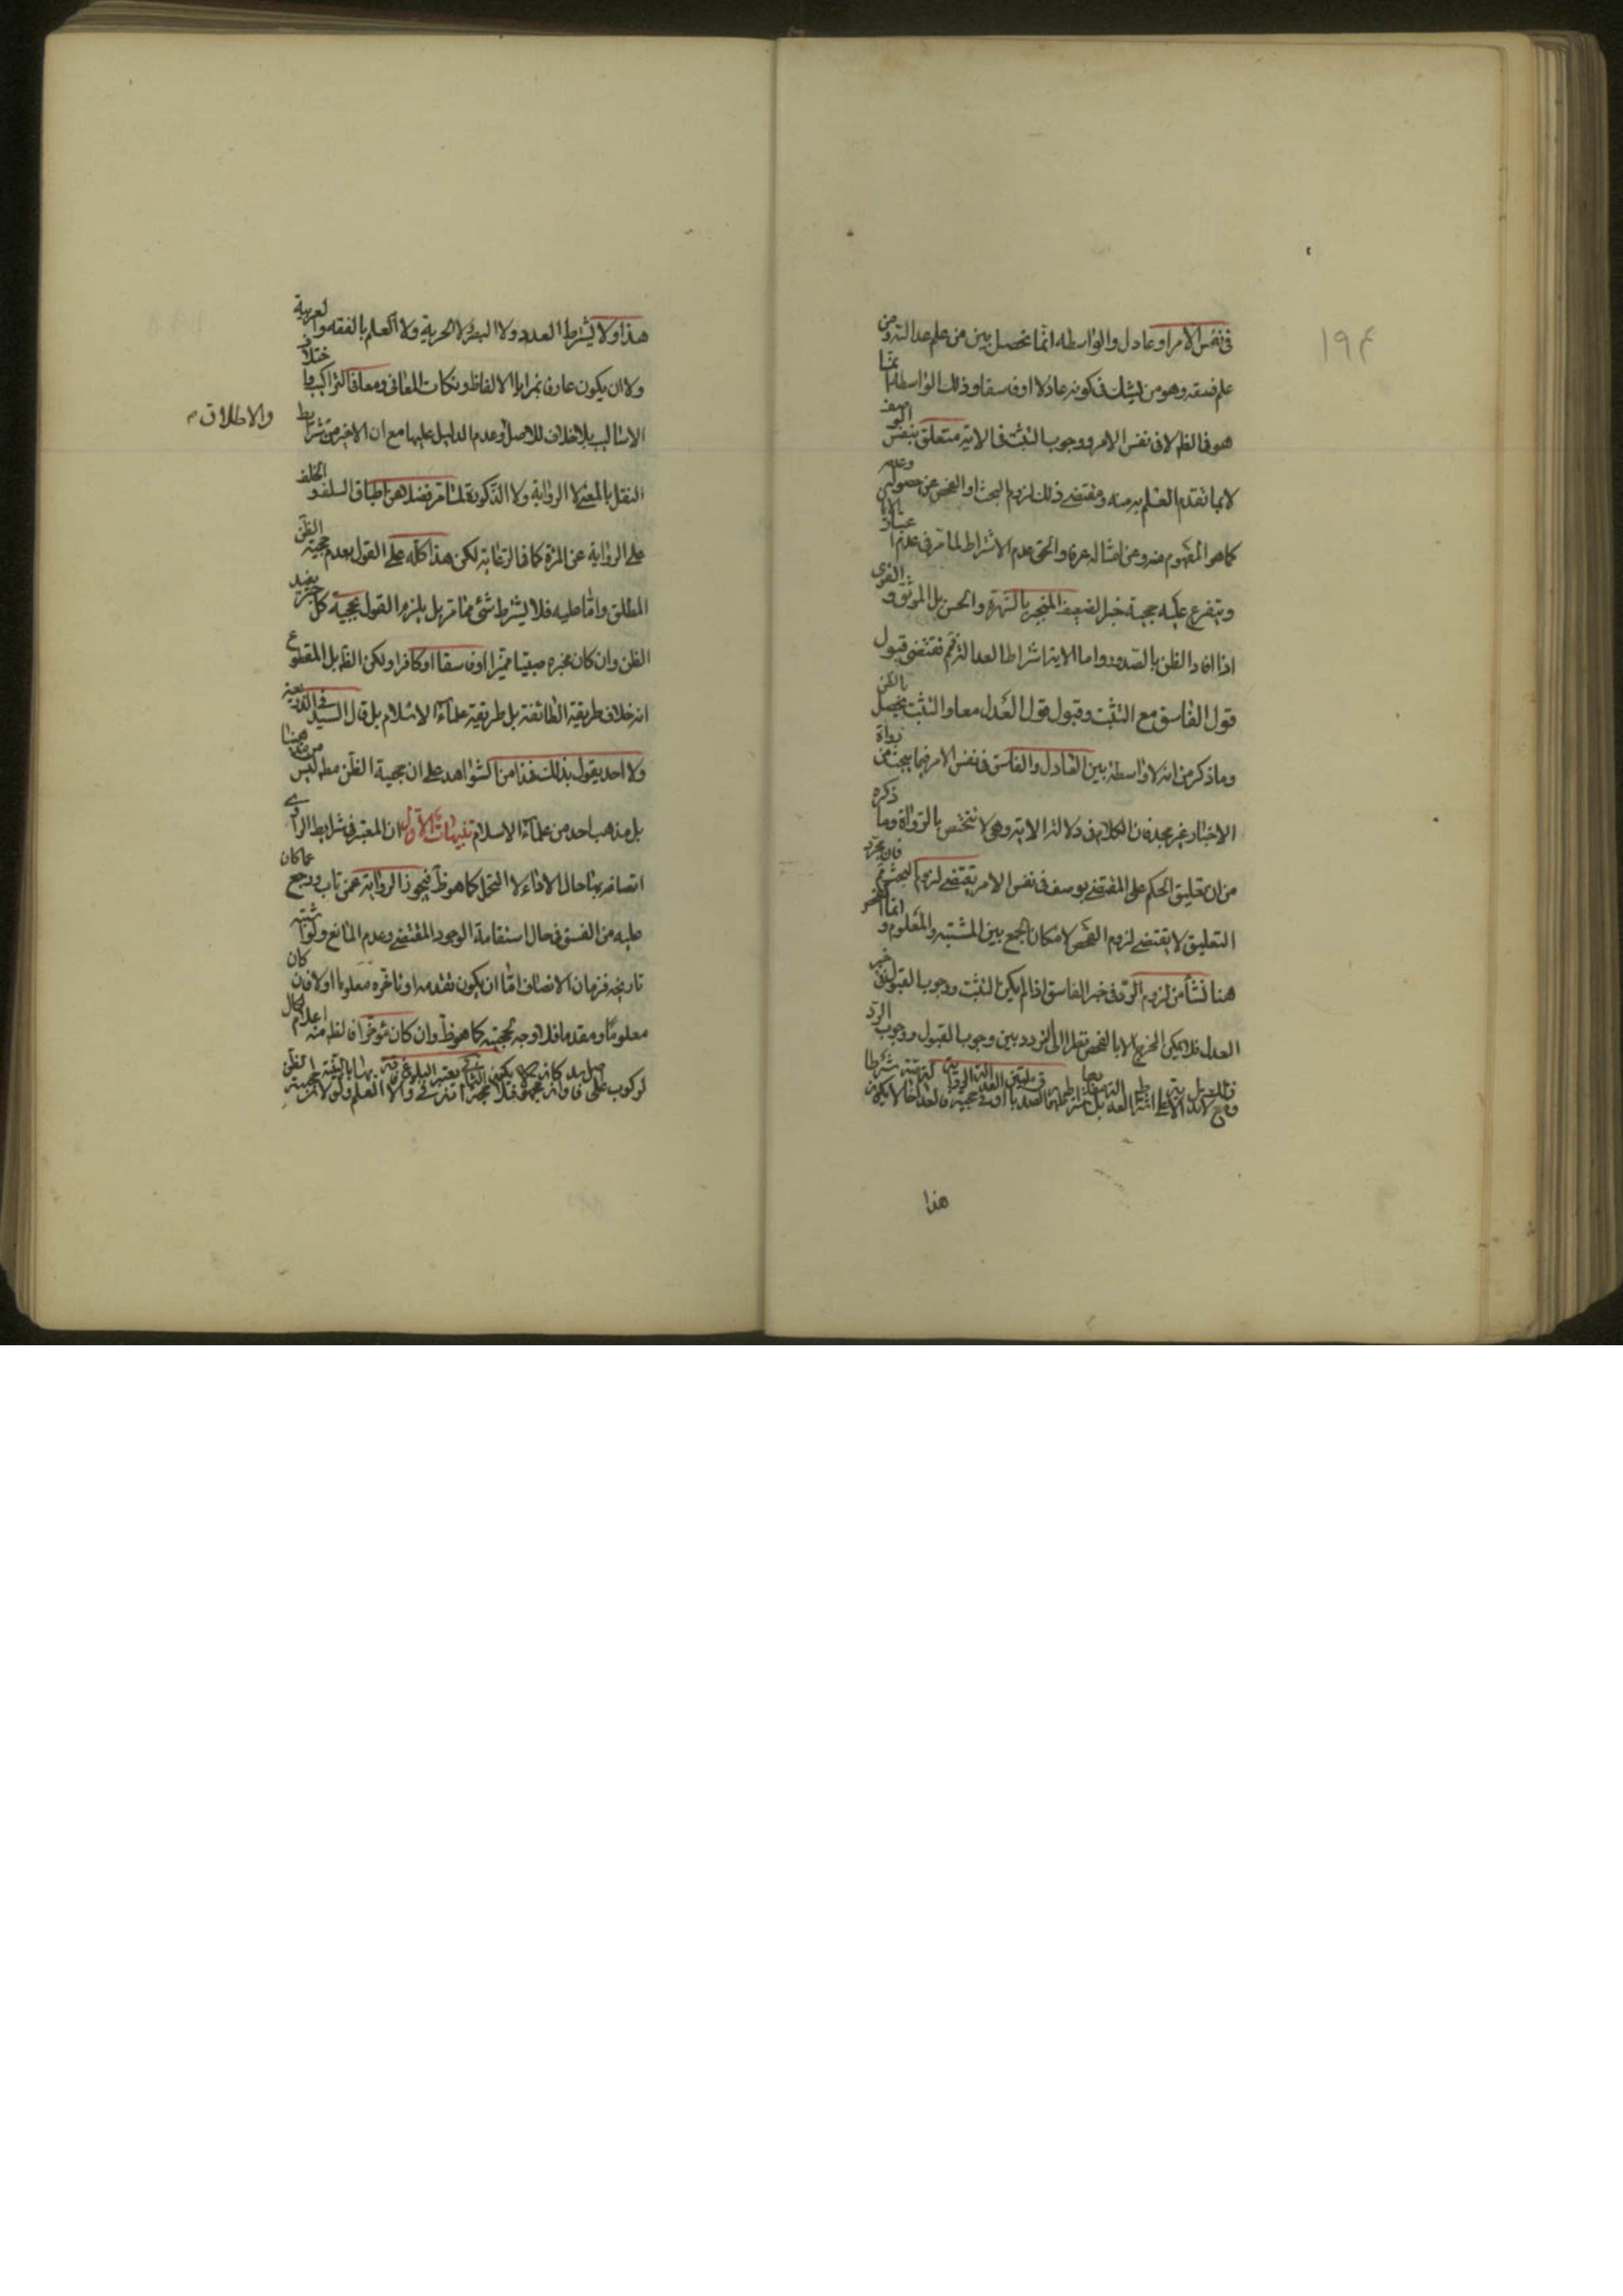 ١٩۴
في نفس الامر او عادل والواسطه انما تحصل بين من علم عدالته ومن
علم فسقه وهو من يشك في كونه عادلا او فاسقا وذلك الواسطة انما
هو في الظ لا في نفس الامر ووجوب التثبت في الاية متعلق بنفس الوصف
لا بما تقدم العلم به منه ومقتضى ذلك لزوم البحث او الفحص عن حصوله وعدمه
كما هو المفهوم منه وعن امثاله عرفا والحق عدم الاشتراط لما مر في عدم اعتبار
ويتفرع عليه حجية خبر الضعيف المنجبر بالشهرة والحسن بل الموثق والقوى
اذا افاد الظن بالصدور واما الاية اشتراط العدالة فهم فتقتضى قبول
قول الفاسق مع التثبت وقبول قول العدل معا والتثبت يحصل بالظن
وما ذكر من انه لا واسطة بين العادل والفاسق في نفس الامر فيما يبحث من رواة
الاخبار غير مجد فان الكلام في دلالة الاية وهى لا تختص بالرواة وما ذكره
من ان تعليق الحكم على المقتضى بوصف في نفس الامر يقتضى لزوم البحث فان مجرد
التعليق لا يقتضى لزوم الفحص لامكان الجمع بين المشتبه والمعلوم وانما
هنا نشأ من لزوم الرد في خبر الفاسق اذا لم يكن التثبت ووجوب القبول في خبر
العدل فلا يمكن الخروج الا بالفحص نظرا الى التردد بين وجوب القبول ووجوب الرد
هذا
هذا ولا يشترط العدد ولا البصر ولا الحرية ولا العلم بالفقه والعربية
ولا ان يكون عارفا بمزايا الالفاظ ونكات المعانى ومعانى التراكيب واختلاف
الاساليب بلا خلاف للاصل وعدم الدليل عليها مع ان الاخير من شرايط
والاطلاق
النقل بالمعنى لا الرواية ولا الذكورة لما مر فضلا عن اطباق السلف والخلف
على الرواية عن المرءة كما في الرعاية لكن هذا كله على القول بعدم حجية الظن
المطلق واما عليه فلا يشترط شئ مما مر بل يلزم القول بحجية كل خبر يفيد
الظن وان كان مخبره صبيا مميزا او فاسقا او كافرا ولكن الظ بل المقطوع
انه خلاف طريقة الطائفة بل طريقة علماء الاسلام بل قال السيد في الذريعة
ولا احد يقول بذلك فذا من الشواهد على ان حجية الظن مطه ليس مذهبنا
بل مذهب احد من علماء الاسلام تنبيهات الاول ان المعتبر في شرايط الراوى
اتصافه بها حال الاداء لا التحمل كما هو ظ فيجوز الرواية عمن تاب ورجع عما كان
عليه من الفسق في حال استقامة الوجود المقتضى وعدم المانع ولو اشتبه
تاريخه فزمان الاتصاف اما ان يكون تقدمه او تاخره معلوما اولا فان كان
معلوما ومقدما فلا وجه لحجيته كما هو ظ وان كان مؤخرا فالظ منه